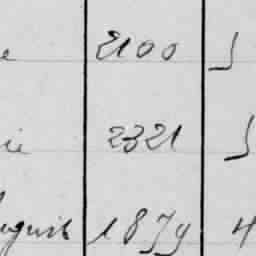 e 2100 J
ie 2321 J
1879 4